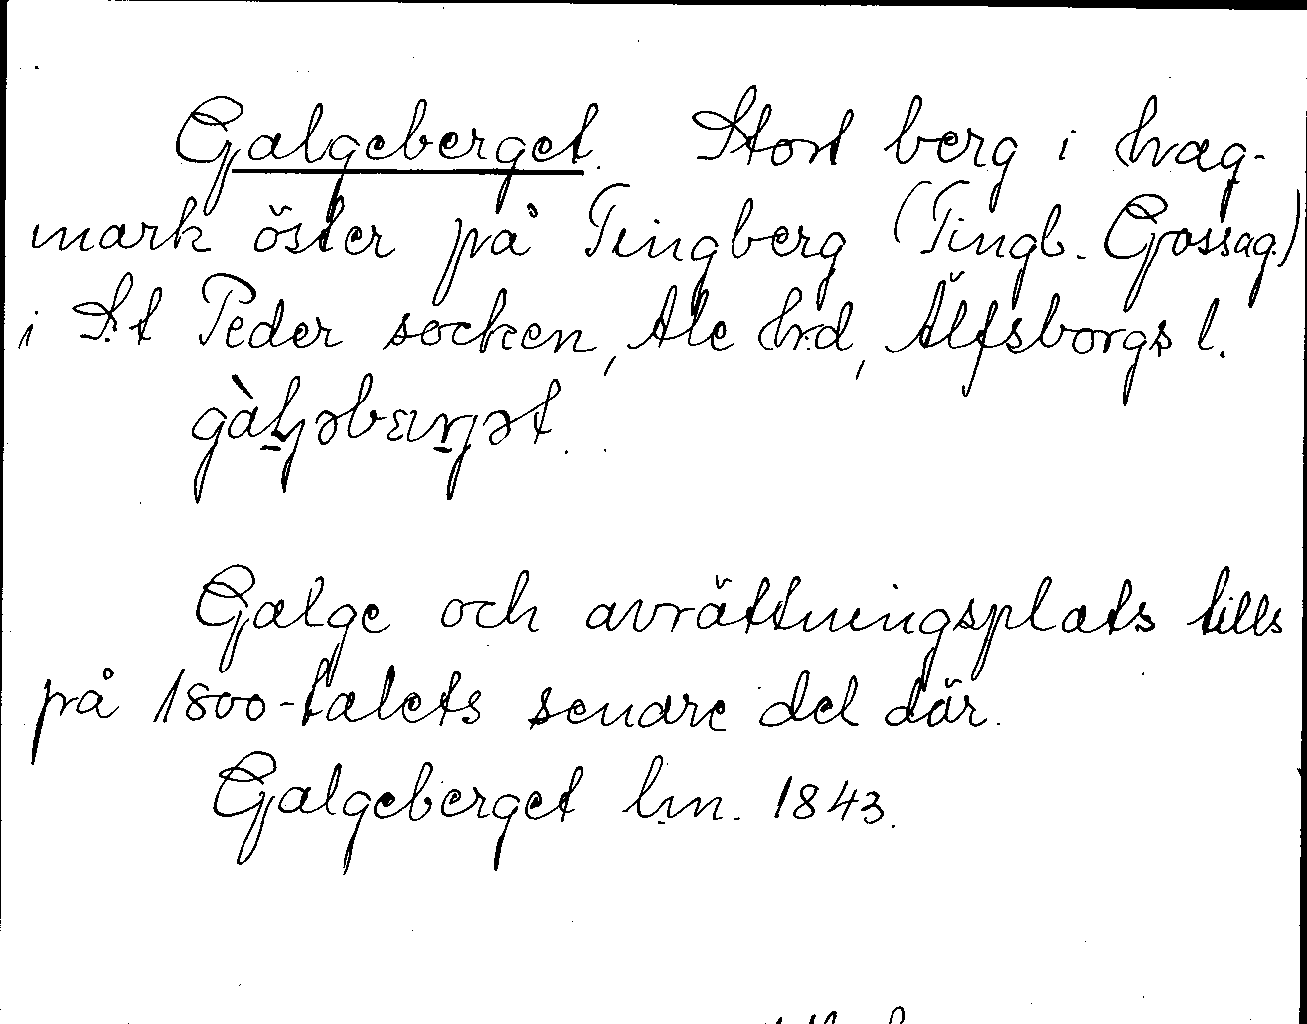 Galgeberget. Stort berg i hag-
mark öster på Tingberg (Tingb. Gossag.)
i S:t Peder socken, Ale hrd, Älfsborgs l.
Galge och avrättningsplats tills
på 1800-talets senare del där.
Galgeberget lm. 1843.